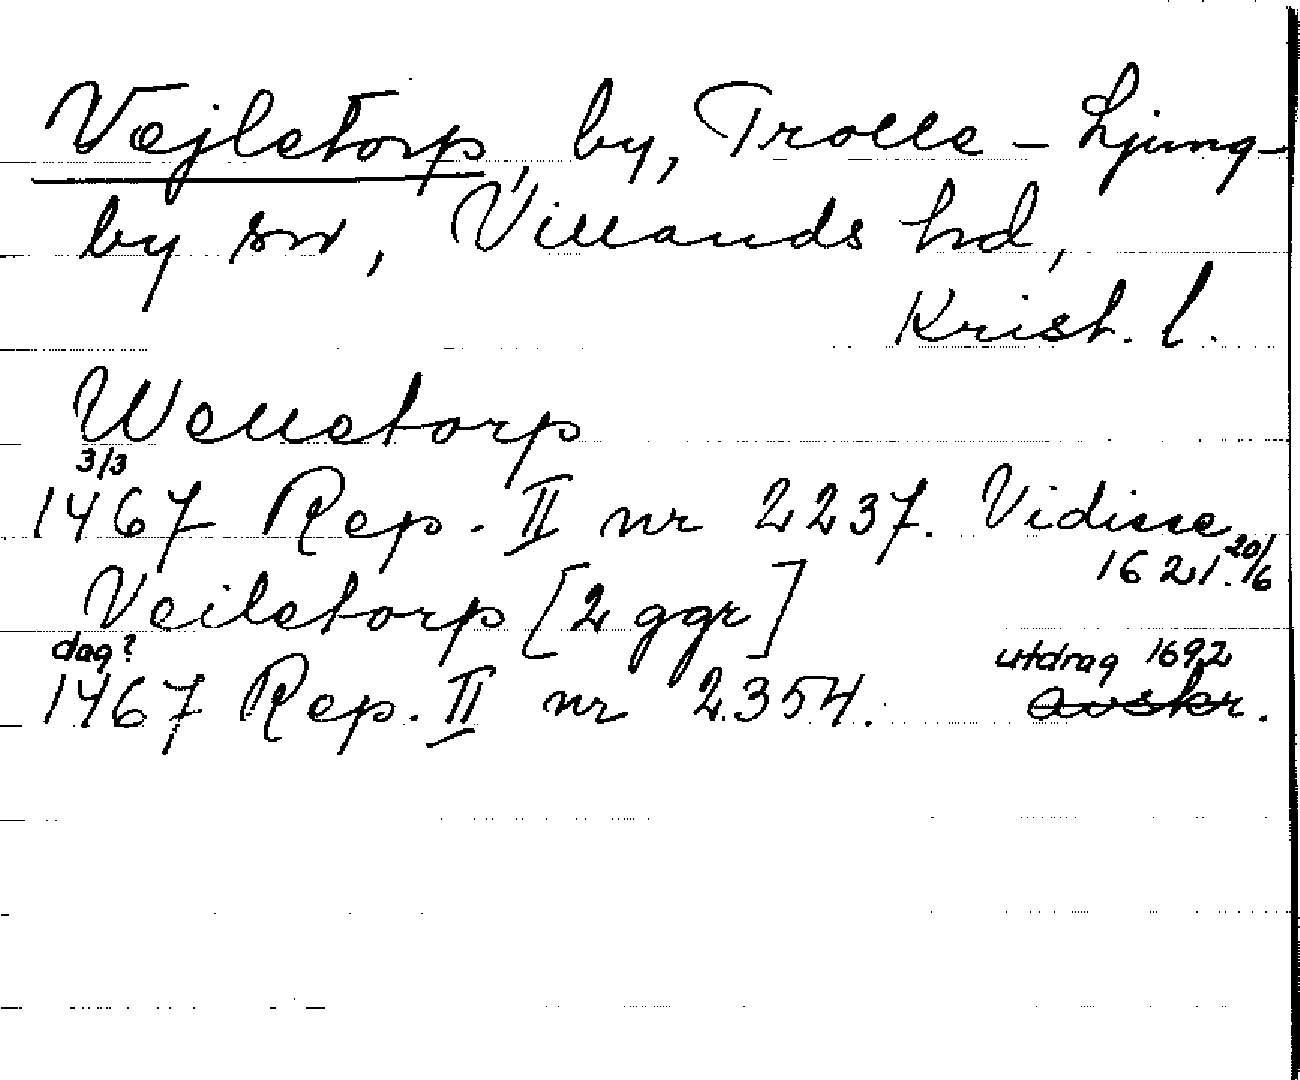 Vejletorp, by, Trolle-Ljung-
by sn, Villands hd,
Krist. l.
Welletorp
3/3
1467 Rep. II nr 2237. Vidisse
1621.20/6
Veiletorp [2 ggr]
dag? utdrag 1692
1467 Rep. II nr 2354. avskr.